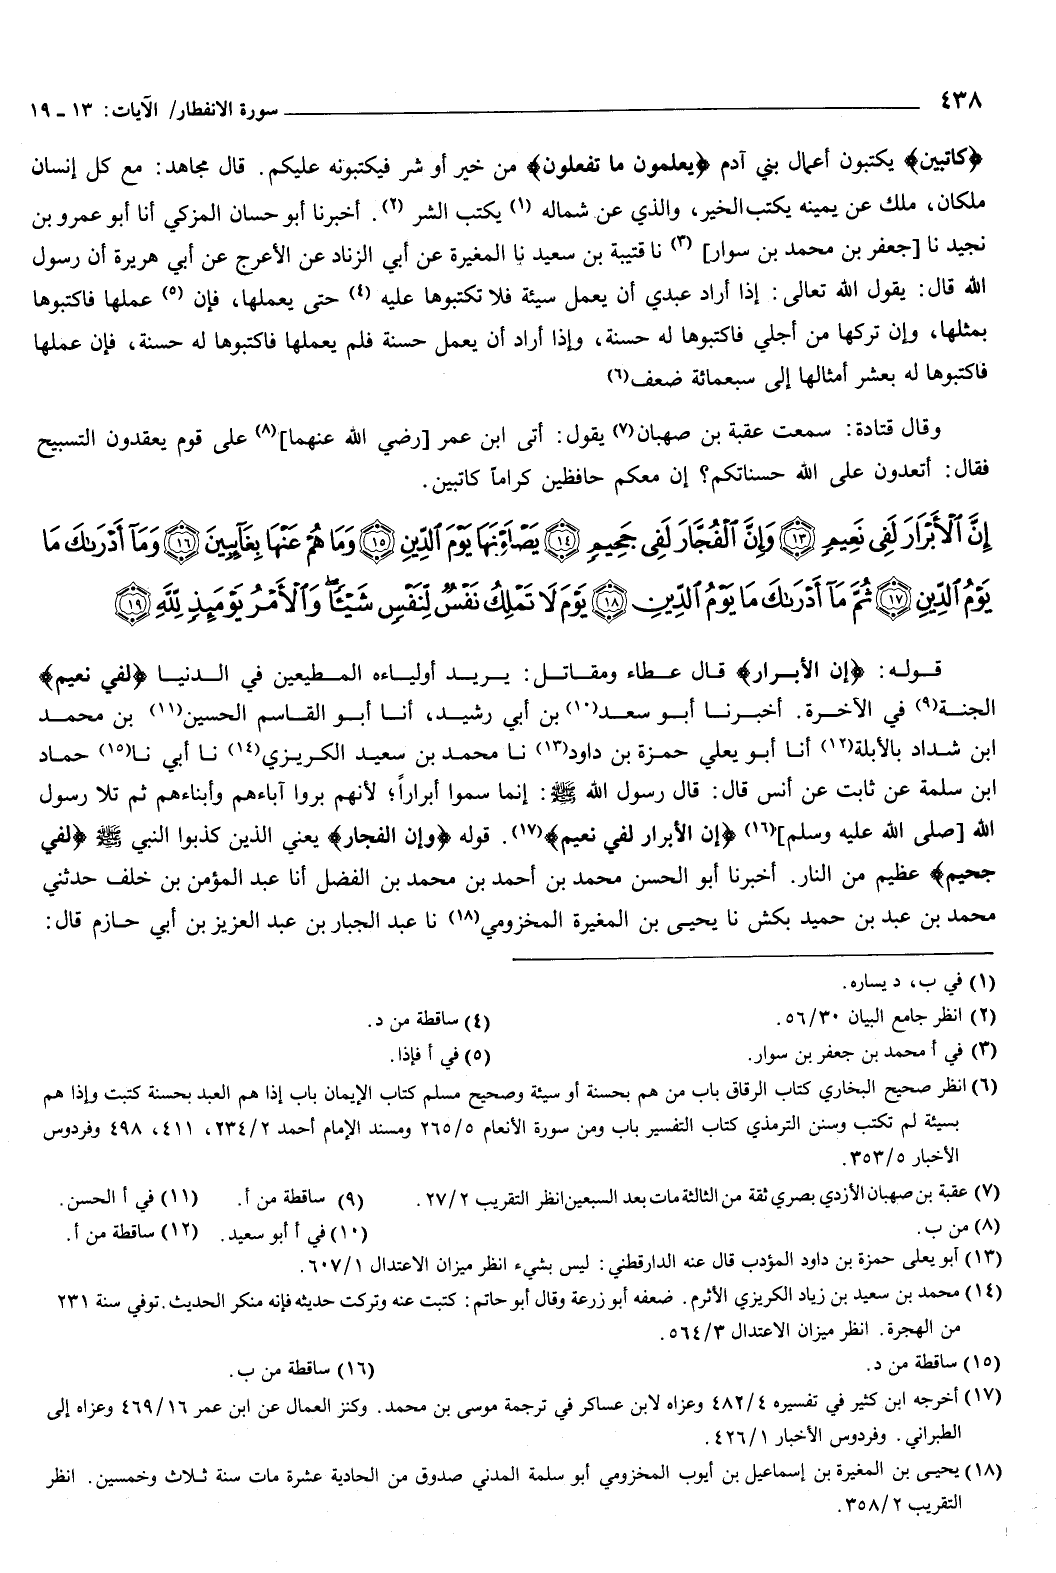 ٤٣٨ سورة الانفطار/ الآيات: ١٣ ـ ١٩
﴿كاتبين﴾ يكتبون أعمال بني آدم ﴿يعلمون ما تفعلون﴾ من خير أو شر فيكتبونه عليكم. قال مجاهد: مع كل إنسان
ملكان، ملك عن يمينه يكتب الخير، والذي عن شماله (١) يكتب الشر (٢). أخبرنا أبو حسان المزكي أنا أبو عمرو بن
نجيد نا [جعفر بن محمد بن سوار] (٣) نا قتيبة بن سعيد نا المغيرة عن أبي الزناد عن الأعرج عن أبي هريرة أن رسول
الله قال: يقول الله تعالى: إذا أراد عبدي أن يعمل سيئة فلا تكتبوها عليه (٤) حتى يعملها، فإن (٥) عملها فاكتبوها
بمثلها، وإن تركها من أجلي فاكتبوها له حسنة، وإذا أراد أن يعمل حسنة فلم يعملها فاكتبوها له حسنة، فإن عملها
فاكتبوها له بعشر أمثالها إلى سبعمائة ضعف(٦)
وقال قتادة: سمعت عقبة بن صهبان(٧) يقول: أتى ابن عمر [رضي الله عنهما](٨) على قوم يعقدون التسبيح
فقال: أتعدون على الله حسناتكم؟ إن معكم حافظين كراماً كاتبين.
إِنَّ ٱلْأَبْرَارَ لَفِى نَعِيمٍ ﴿١٣﴾ وَإِنَّ ٱلْفُجَّارَ لَفِى جَحِيمٍ ﴿١٤﴾ يَصْلَوْنَهَا يَوْمَ ٱلدِّينِ ﴿١٥﴾ وَمَا هُمْ عَنْهَا بِغَآئِبِينَ ﴿١٦﴾ وَمَآ أَدْرَىٰكَ مَا
يَوْمُ ٱلدِّينِ ﴿١٧﴾ ثُمَّ مَآ أَدْرَىٰكَ مَا يَوْمُ ٱلدِّينِ ﴿١٨﴾ يَوْمَ لَا تَمْلِكُ نَفْسٌ لِّنَفْسٍ شَيْـًٔا ۖ وَٱلْأَمْرُ يَوْمَئِذٍ لِّلَّهِ ﴿١٩﴾
قوله: ﴿إن الأبرار﴾ قال عطاء ومقاتل: يريد أولياءه المطيعين في الدنيا ﴿لفي نعيم﴾
الجنة(٩) في الآخرة. أخبرنا أبو سعد(١٠) بن أبي رشيد، أنا أبو القاسم الحسين(١١) بن محمد
ابن شداد بالأبلة(١٢) أنا أبو يعلي حمزة بن داود(١٣) نا محمد بن سعيد الكريزي(١٤) نا أبي نا(١٥) حماد
ابن سلمة عن ثابت عن أنس قال: قال رسول الله ﷺ: إنما سموا أبراراً؛ لأنهم بروا آباءهم وأبناءهم ثم تلا رسول
الله [صلى الله عليه وسلم](١٦) ﴿إن الأبرار لفي نعيم﴾(١٧). قوله ﴿وإن الفجار﴾ يعني الذين كذبوا النبي ﷺ ﴿لفي
جحيم﴾ عظيم من النار. أخبرنا أبو الحسن محمد بن أحمد بن محمد بن الفضل أنا عبد المؤمن بن خلف حدثني
محمد بن عبد بن حميد بكش نا يحيى بن المغيرة المخزومي(١٨) نا عبد الجبار بن عبد العزيز بن أبي حازم قال:
(١) في ب، د يساره.
(٢) انظر جامع البيان ٥٦/٣٠. (٤) ساقطة من د.
(٣) في أ محمد بن جعفر بن سوار. (٥) في أ فإذا.
(٦) انظر صحيح البخاري كتاب الرقاق باب من هم بحسنة أو سيئة وصحيح مسلم كتاب الإيمان باب إذا هم العبد بحسنة كتبت وإذا هم
بسيئة لم تكتب وسنن الترمذي كتاب التفسير باب ومن سورة الأنعام ٢٦٥/٥ ومسند الإمام أحمد ٢٣٤/٢، ٤١١، ٤٩٨ وفردوس
الأخبار ٣٥٣/٥.
(٧) عقبة بن صهبان الأزدي بصري ثقة من الثالثة مات بعد السبعين انظر التقريب ٢٧/٢. (٩) ساقطة من أ. (١١) في أ الحسن.
(٨) من ب. (١٠) في أ أبو سعيد. (١٢) ساقطة من أ.
(١٣) أبو يعلى حمزة بن داود المؤدب قال عنه الدارقطني: ليس بشيء انظر ميزان الاعتدال ٦٠٧/١.
(١٤) محمد بن سعيد بن زياد الكريزي الأثرم. ضعفه أبو زرعة وقال أبو حاتم: كتبت عنه وتركت حديثه فإنه منكر الحديث. توفي سنة ٢٣١
من الهجرة. انظر ميزان الاعتدال ٥٦٤/٣.
(١٥) ساقطة من د. (١٦) ساقطة من ب.
(١٧) أخرجه ابن كثير في تفسيره ٤٨٢/٤ وعزاه لابن عساكر في ترجمة موسى بن محمد. وكنز العمال عن ابن عمر ٤٦٩/١٦ وعزاه إلى
الطبراني. وفردوس الأخبار ٤٢٦/١.
(١٨) يحيى بن المغيرة بن إسماعيل بن أيوب المخزومي أبو سلمة المدني صدوق من الحادية عشرة مات سنة ثلاث وخمسين. انظر
التقريب ٣٥٨/٢.